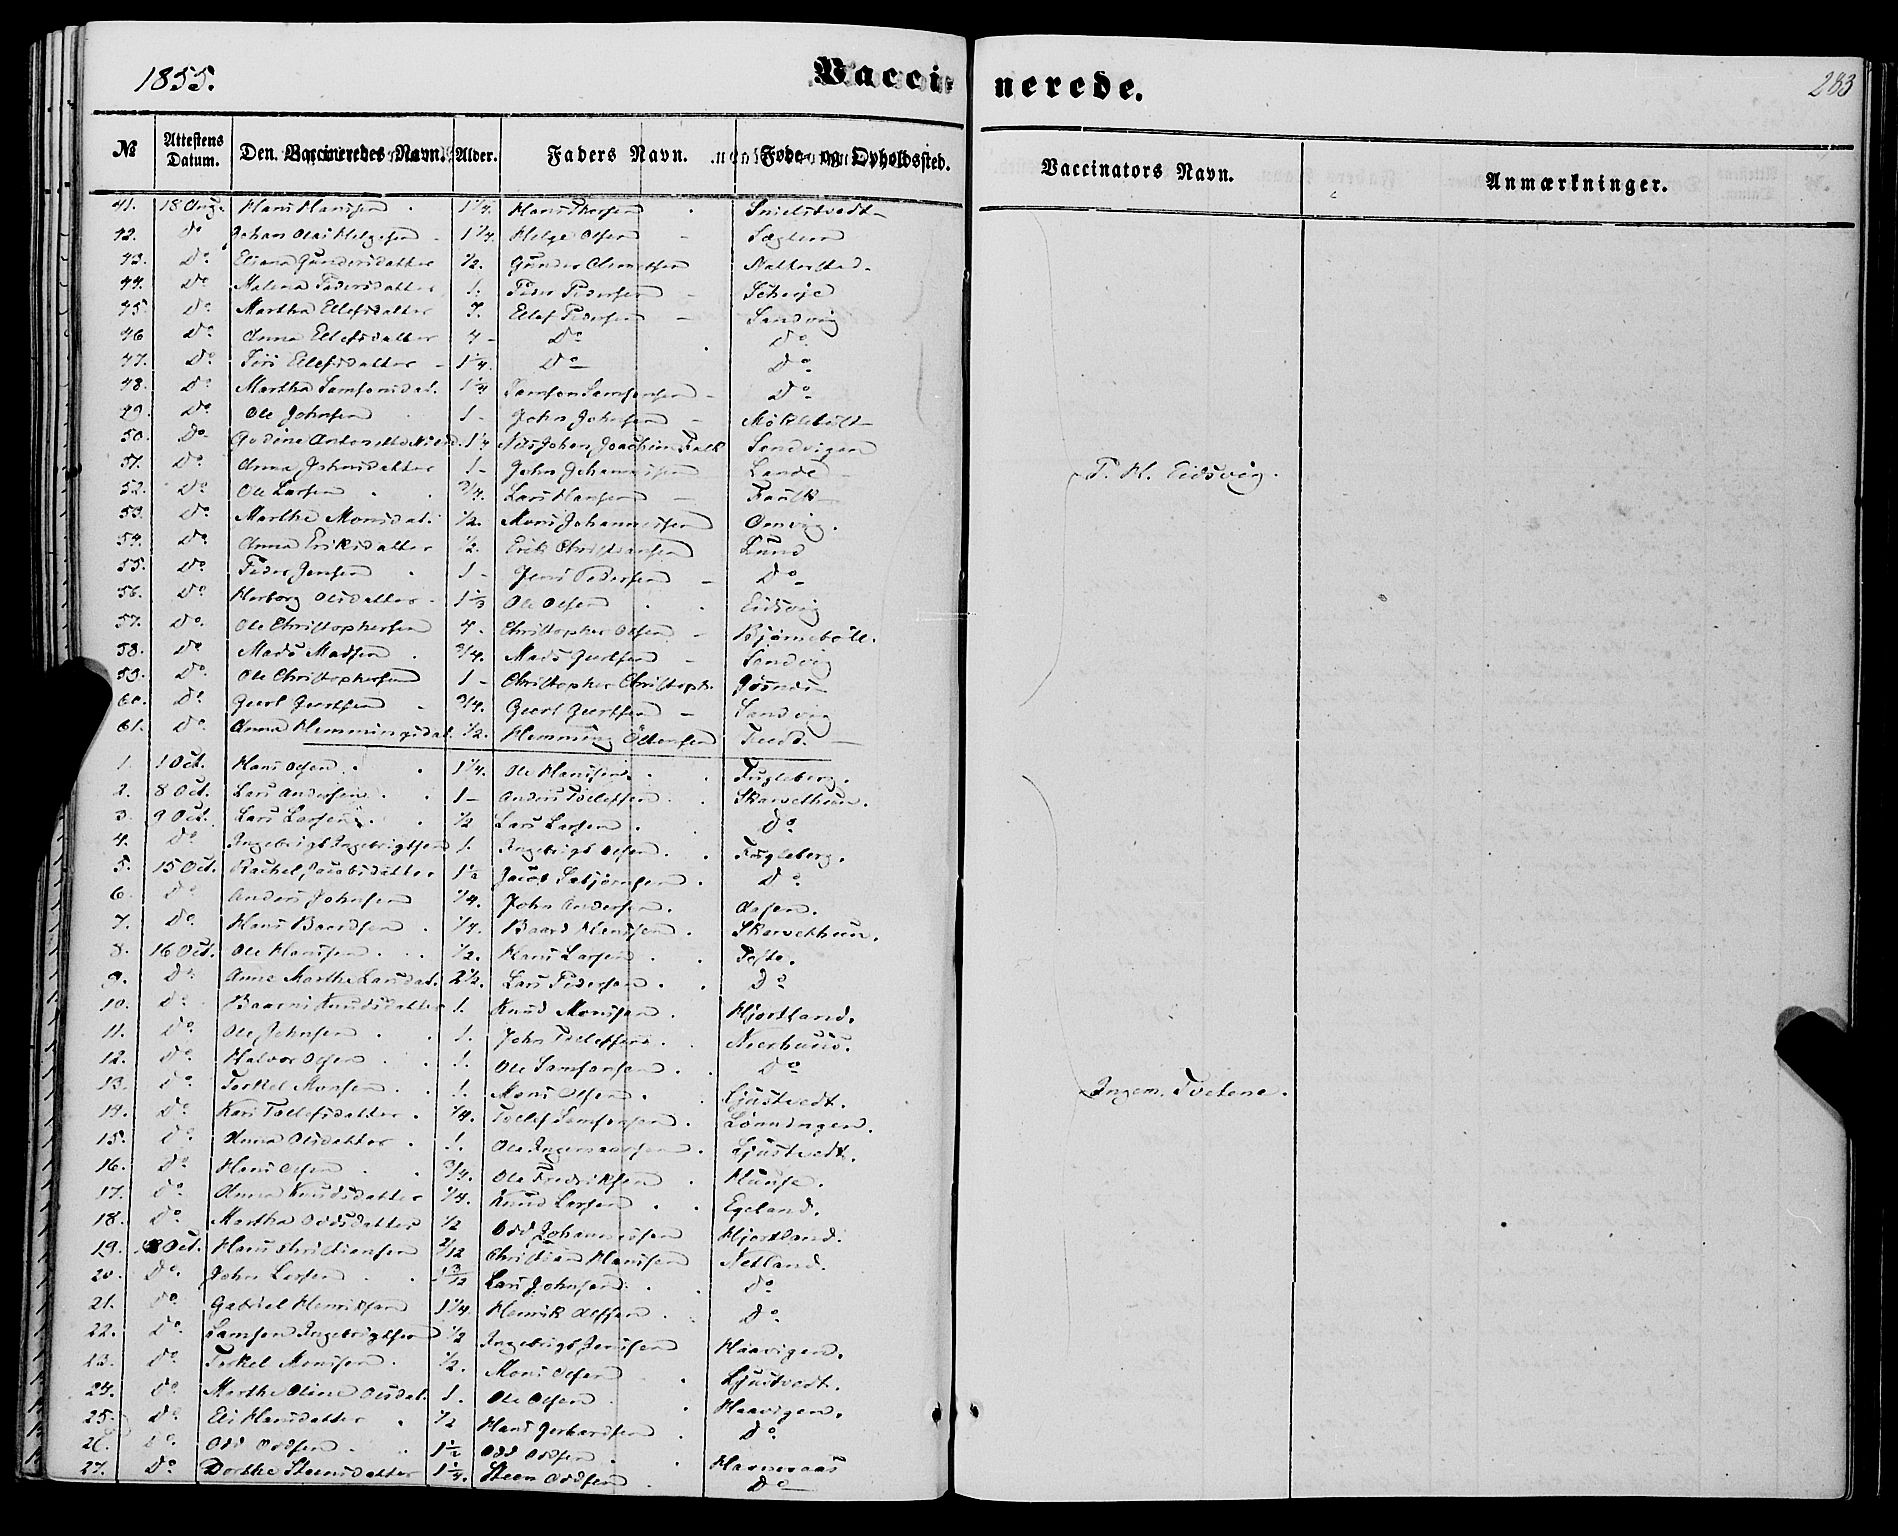 1855. Vaccinerede. 283
№ Attestens Datum. Den Vaccineredes Navn. Alder. Faders Navn. Føde- og Opholdssted. Vaccinators Navn. Anmærkninger.
41. 18 Aug. Hans Hansen 1 1/4. Hans
42. Do Johan Olai Helgesen 1 1/4 Helge Olsen
43. Do Eliana Gundersdatter 1/2. Gunder Natterstad.
44. Do Malena Pedersdatter 1. Peder Pedersen
45. Do Martha Ellefsdatter 7. Ellef Pedersen Sandvig
46 Do Anna Ellefsdatter 4 Do Do
47. Do Siri Ellefsdatter 1 1/4. Do Do
48. Do Martha Samsonsdat. 1 1/4 Samson Samsonsen Do
49. Do Ole Johnsen 1 John Johnsen Möklebust
50. Do 1 1/4 Nils Johan Joachim Falk Sandvigen
51. Do Anna Johnsdatter 1 John Johannessen Lande
52. Do Ole Larsen 3/4. Lars Hansen
53. Do Marthe Monsdat. 1/2. Mons Johannessen Omvig.
54. Do Anna Eriksdatter 1/2. Erik Christiansen Lund
55. Do Peder Jensen 1 Jens Pedersen Do
56. Do Herborg Olsdatter 1 1/3 Ole Olsen Eidsvig
57. Do Ole Christophersen 4 Christopher Olsen
58. Do Mads Madsen 3/4. Mads Geertsen Sandvig
59. Do Ole Christophersen 1 Christopher Christoph.
60. Do Geert Geertsen 3/4. Geert Geertsen Sandvig
61. Do Anna Hemmingsdat. 1/2. Hemming Tveed.
T. H. Eidsvig.
1. 1 Oct. Hans Olsen 1 1/4. Ole Hansen Fugleberg.
2. 8 Oct. Lars Andersen 1 Anders Tollefsen Skarvethun.
3. 9 Oct. Lars Larsen 1/2 Lars Larsen Do
4. Do Ingebrigt Ingebrigtsen 1. Ingebrigt Olsen Fugleberg.
5. 15 Oct. Rachel Jacobsdatter 1 1/2 Jacob Do
6. Do Anders Johnsen 1/4. John Andersen Aasen.
7. Do Hans Baardsen 1/4. Baard Hansen Skarvethun.
8. 16 Oct. Ole Hansen 1/2. Hans Larsen Tofte.
9. Do Anne Marthe Larsdat. 2 1/2. Lars Pedersen Do
10. Do Knudsdatter 1. Knud Monsen Hjortland.
11. Do Ole Johnsen 1. John Tollefsen Neerhuus.
12. Do Halvor Olsen 1. Ole Samsonsen Do
13. Do Torkel Monsen 1. Mons Olsen Ljustvedt.
14. Do Kari Tollefsdatter 1/4. Tollef Samsonsen Lönningen.
15. Do Anna Olsdatter 1. Ole Ljustvedt.
16. Do Hans Olsen 3/4. Ole Fredriksen
17. Do Anna Knudsdatter 1/4. Knud Larsen Egeland.
18. Do Martha Oddsdatter 1/2 Odd Johannessen Hjortland.
19. 18 Oct. Hans Christiansen 2/12 Christian Hansen Netland.
20. Do John Larsen 1 3/12 Lars Johnsen Do
21. Do Gabriel Henriksen 1 1/4. Henrik Do
22. Do Samson Ingebrigtsen 1/2 Ingebrigt Jensen Haavigen.
23. Do Torkel Monsen 1/2. Mons Olsen Ljustvedt.
24. Do Marthe Oline Olsdat. 1. Ole Olsen Haavigen.
25. Do Eli Hansdatter 1/2 Hans Gerhardsen Do
26. Do Odd Oddsen 1 1/2 Odd Oddsen
27. Do Dorthe Steensdatter 1 1/4. Steen Oddsen Do
Ingem. Tvetene.